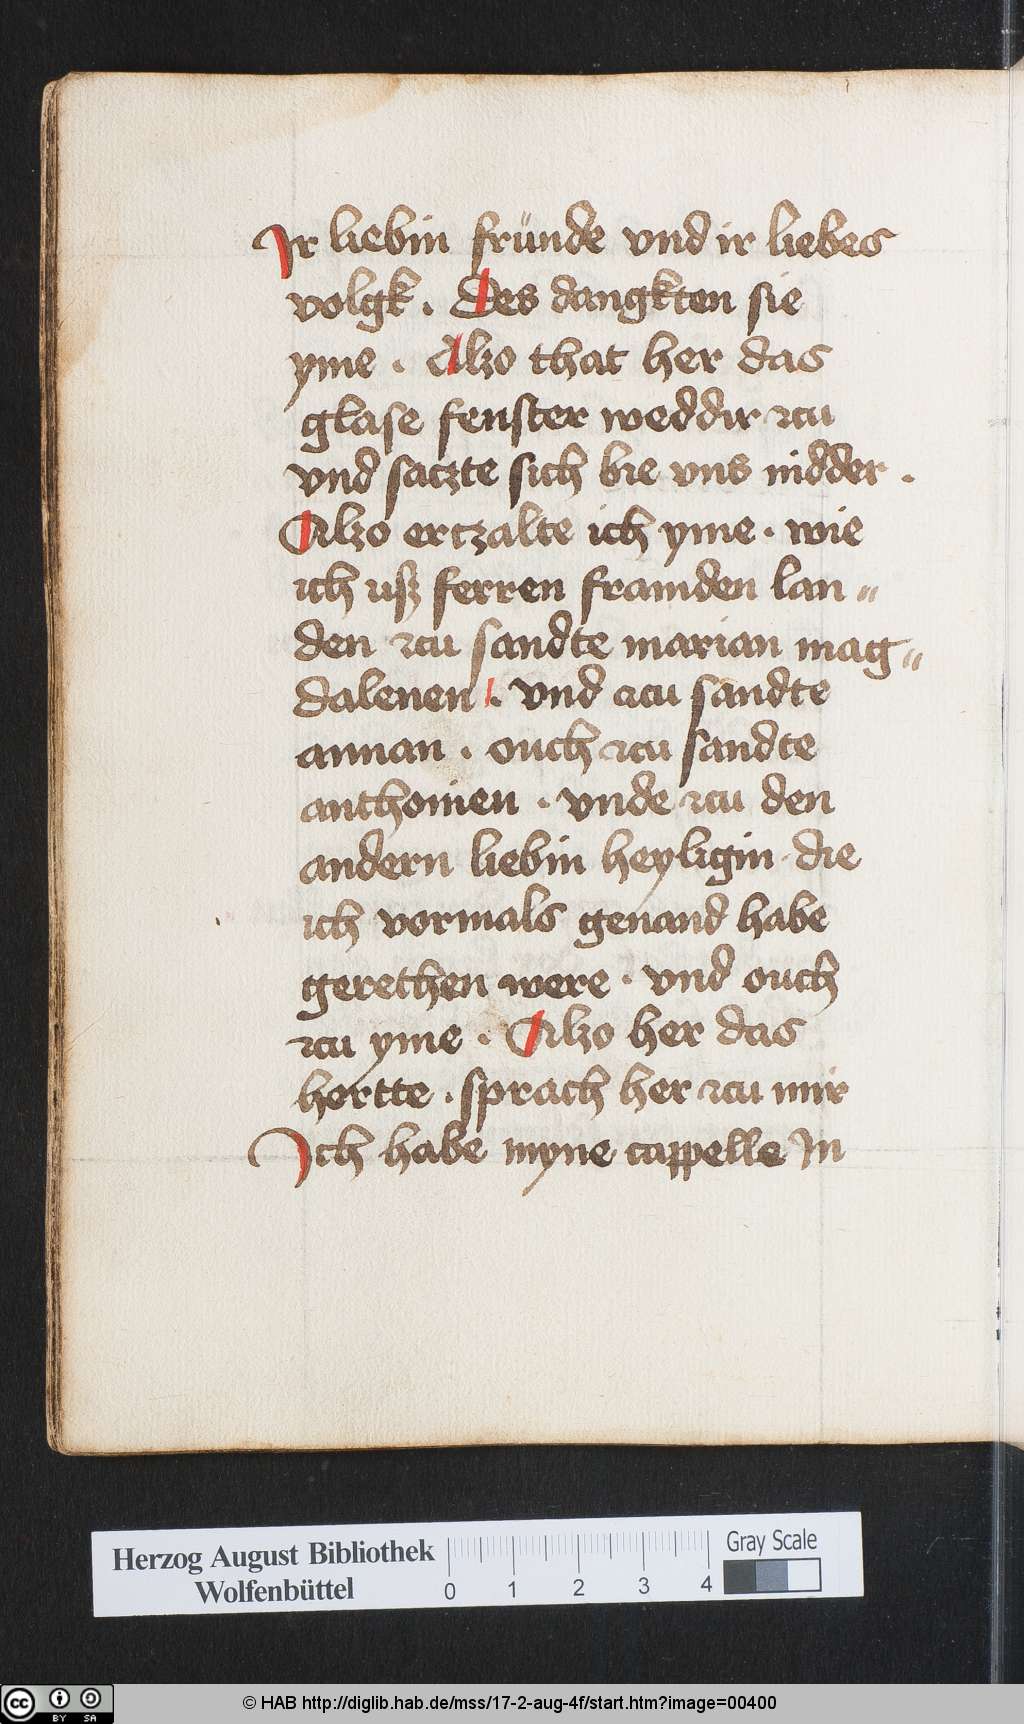 Ir liebin fründe vnd ir liebes
volgk . Des dangkten sie
yme . Alzo that her das
glase fenster weddir zcu
vnd saczte sich bie vns nidder .
Alzo ertzalte ich yme . wie
ich uß ferren framden lan〃
den zcu sandte marian mag〃
dalenen . vnd zcu sandte
annan . ouch zcu sandte
anthonien . vnde zcu den
andern liebin heyligin . die
ich vormals genand habe
gerethen were . vnd ouch
zcu yme . Alzo her das
hortte . sprach her zcu mir
Ich habe myne cappelle In
Herzog August Bibliothek
Wolfenbüttel
0 1 2 3 4
Gray Scale
cc BY SA
© HAB http://diglib.hab.de/mss/17-2-aug-4f/start.htm?image=00400